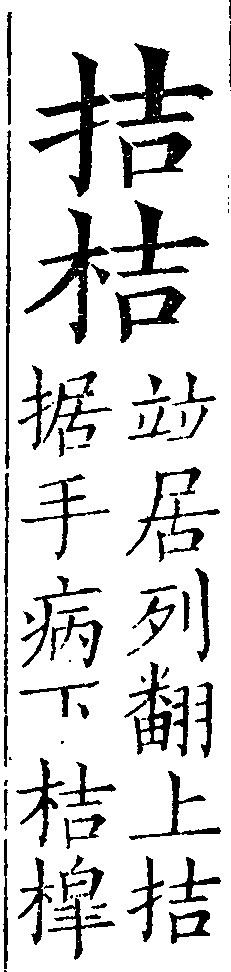 拮桔
竝居列翻上拮
据手病下桔槹